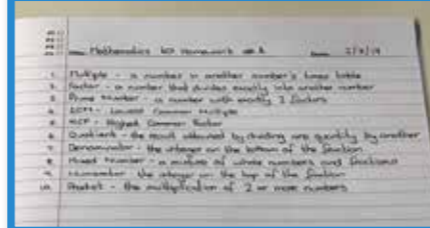 Mathematics KO Homework wk 2
1. Multiple - a number in another number's times table
2. Factor - a number that divides exactly into another number
3. Prime Number - a number with exactly 2 factors
4. LCM - Lowest Common Multiple
5. HCF - Highest Common Factor
6. Quotient - the result obtained by dividing one quantity by another
7. Denominator - the integer on the bottom of the fraction
8. Mixed Number - a mixture of whole numbers and fractions
9. Numerator - the integer on the top of the fraction
10. Product - the multiplication of 2 or more numbers